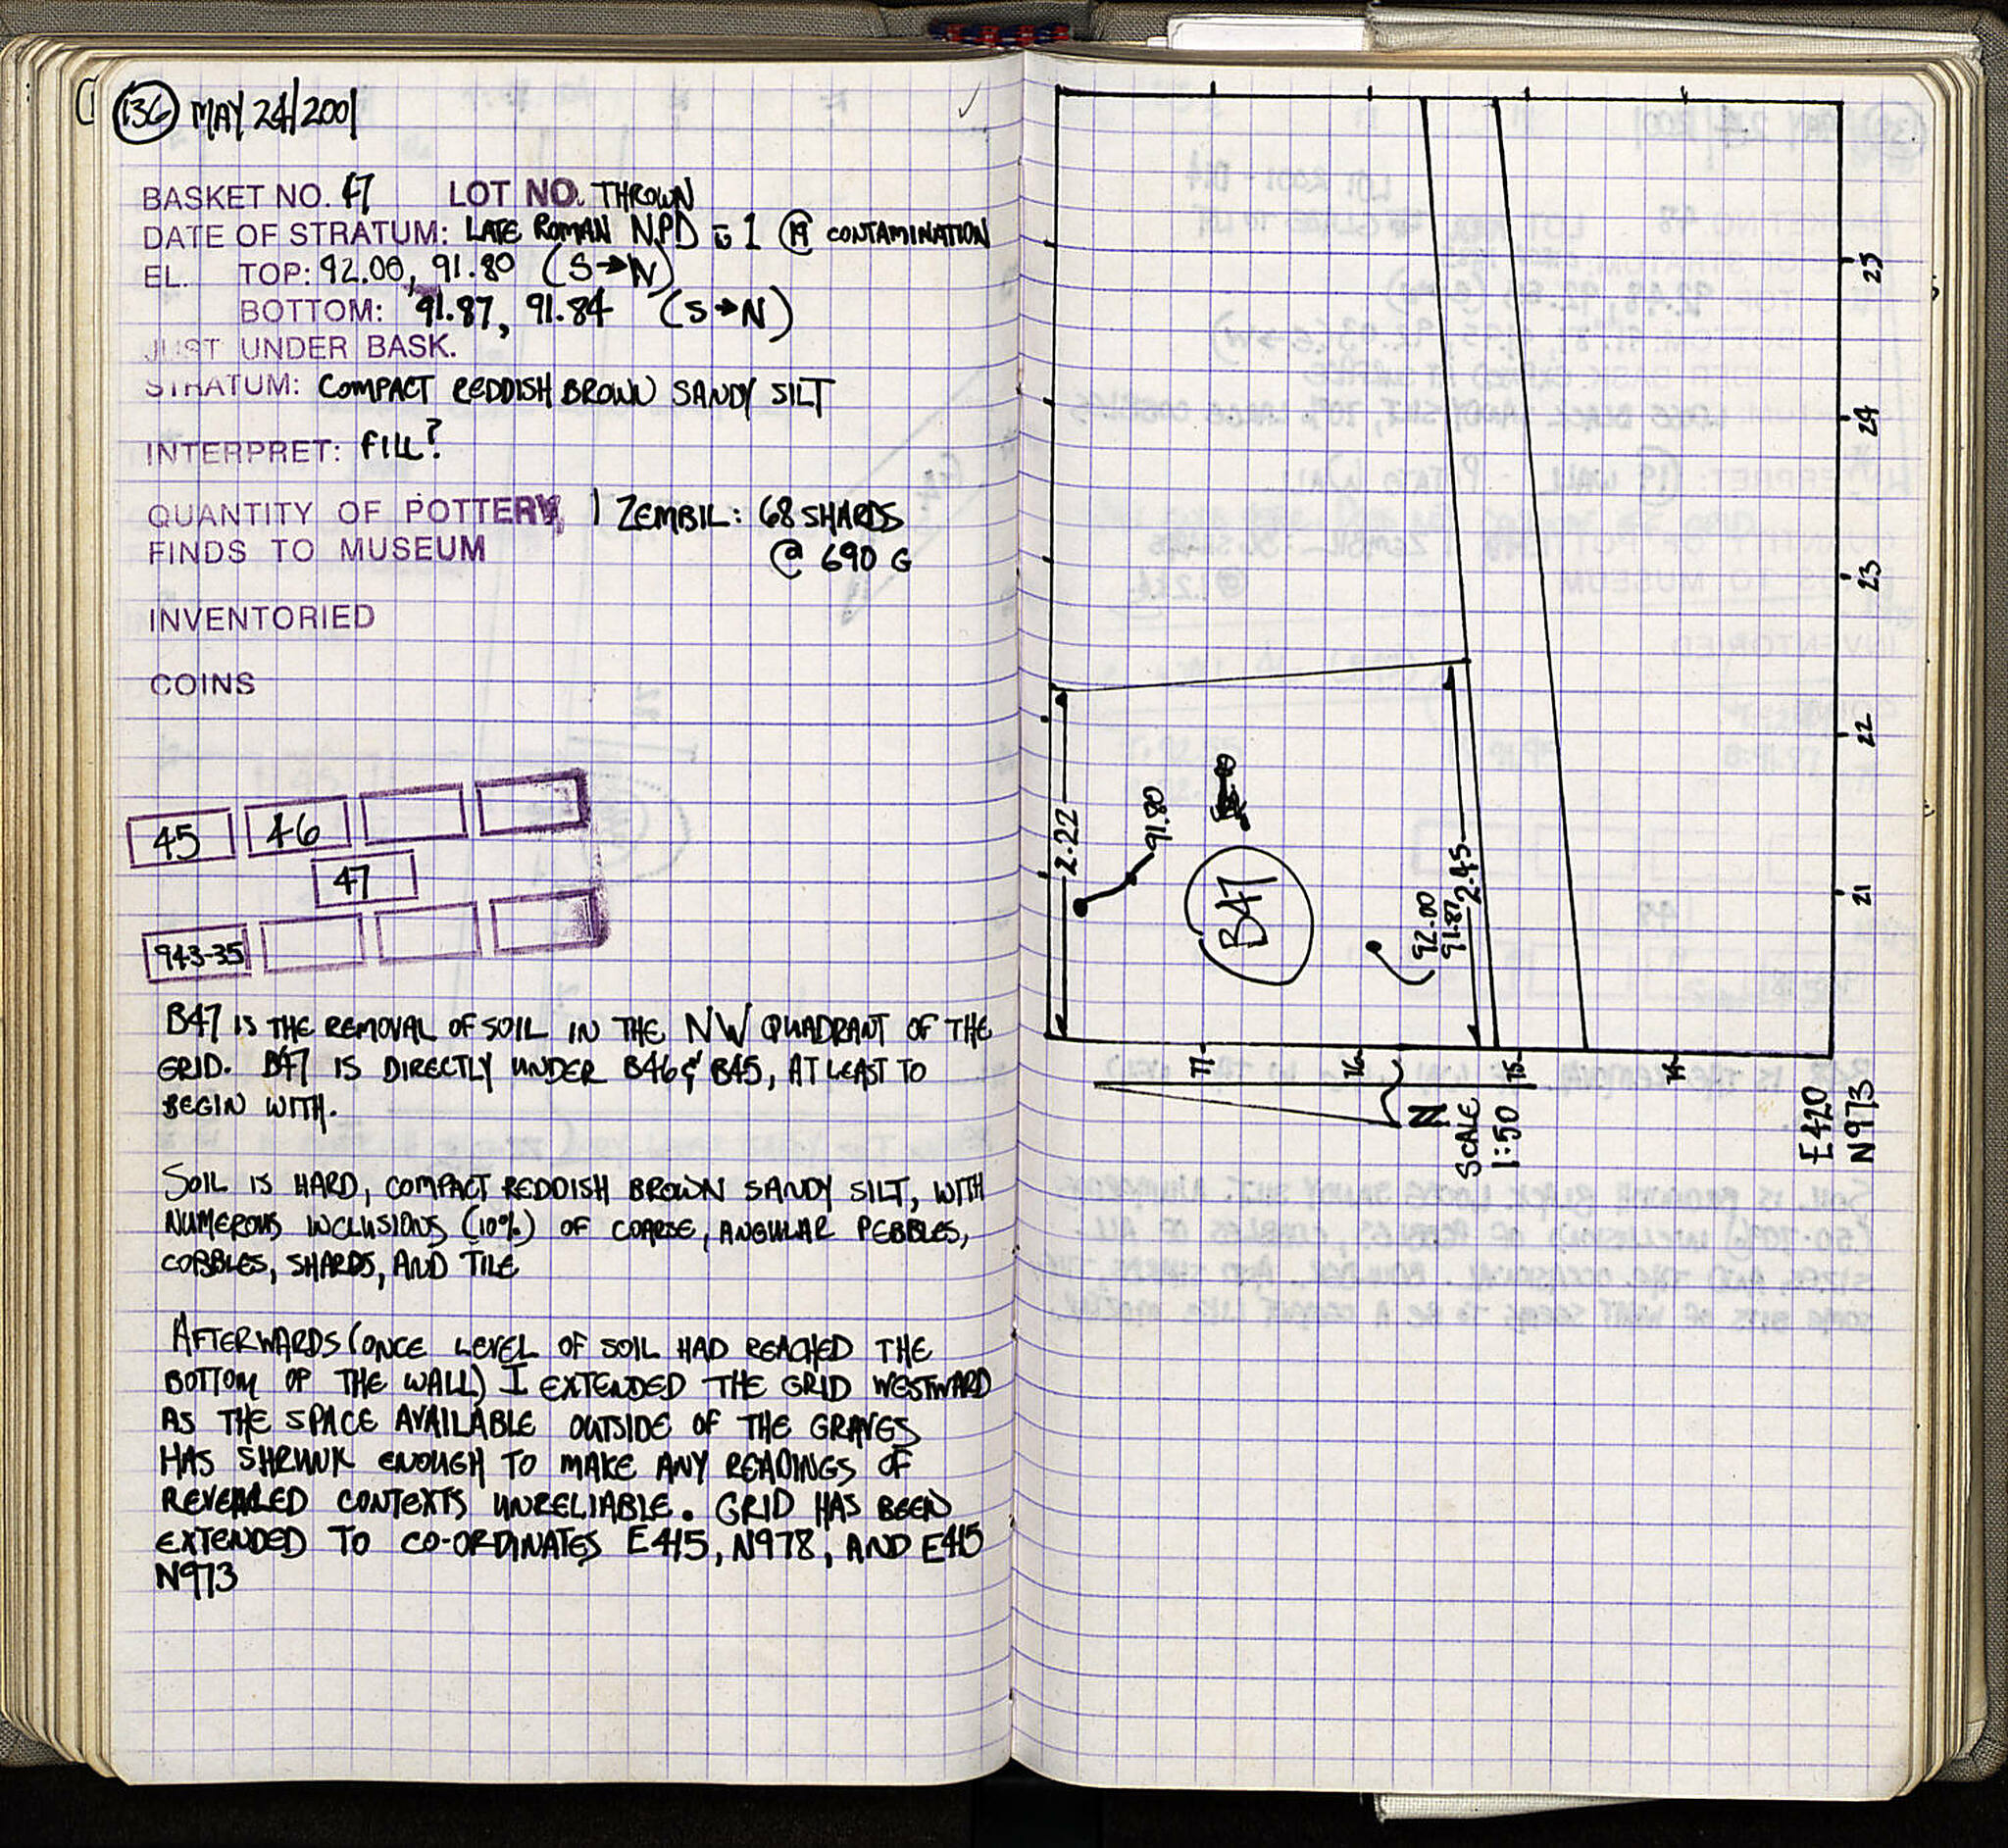 136 MAY 24/2001
BASKET NO. 47 LOT NO. THROWN
DATE OF STRATUM: LATE ROMAN N.P.D 1 CONTAMINATION
EL. TOP: 92.00, 91.80 (S→N)
BOTTOM: 91.87, 91.84 (S→N)
JUST UNDER BASK.
STRATUM: COMPACT REDDISH BROWN SANDY SILT
INTERPRET: FILL?
QUANTITY OF POTTERY, 1 ZEMBIL: 68 SHARDS
FINDS TO MUSEUM @ 690 G
INVENTORIED
COINS
45 46
47
943-35
B47 IS THE REMOVAL OF SOIL IN THE NW QUADRANT OF THE
GRID. B47 IS DIRECTLY UNDER B46 & B45, AT LEAST TO
BEGIN WITH.
SOIL IS HARD, COMPACT REDDISH BROWN SANDY SILT, WITH
NUMEROUS INCLUSIONS (10%) OF COARSE, ANGULAR PEBBLES,
COBBLES, SHARDS, AND TILE
AFTERWARDS (ONCE LEVEL OF SOIL HAD REACHED THE
BOTTOM OF THE WALL) I EXTENDED THE GRID WESTWARD
AS THE SPACE AVAILABLE OUTSIDE OF THE GRAVES
HAS SHRUNK ENOUGH TO MAKE ANY READINGS OF
REVEALED CONTEXTS UNRELIABLE. GRID HAS BEEN
EXTENDED TO CO-ORDINATES E415, N978, AND E415
N973
25
24
23
22
21
2.22
91.80
B47
92.00
91.87
2.45
77
76
75
74
N
SCALE
1:50
E420
N973